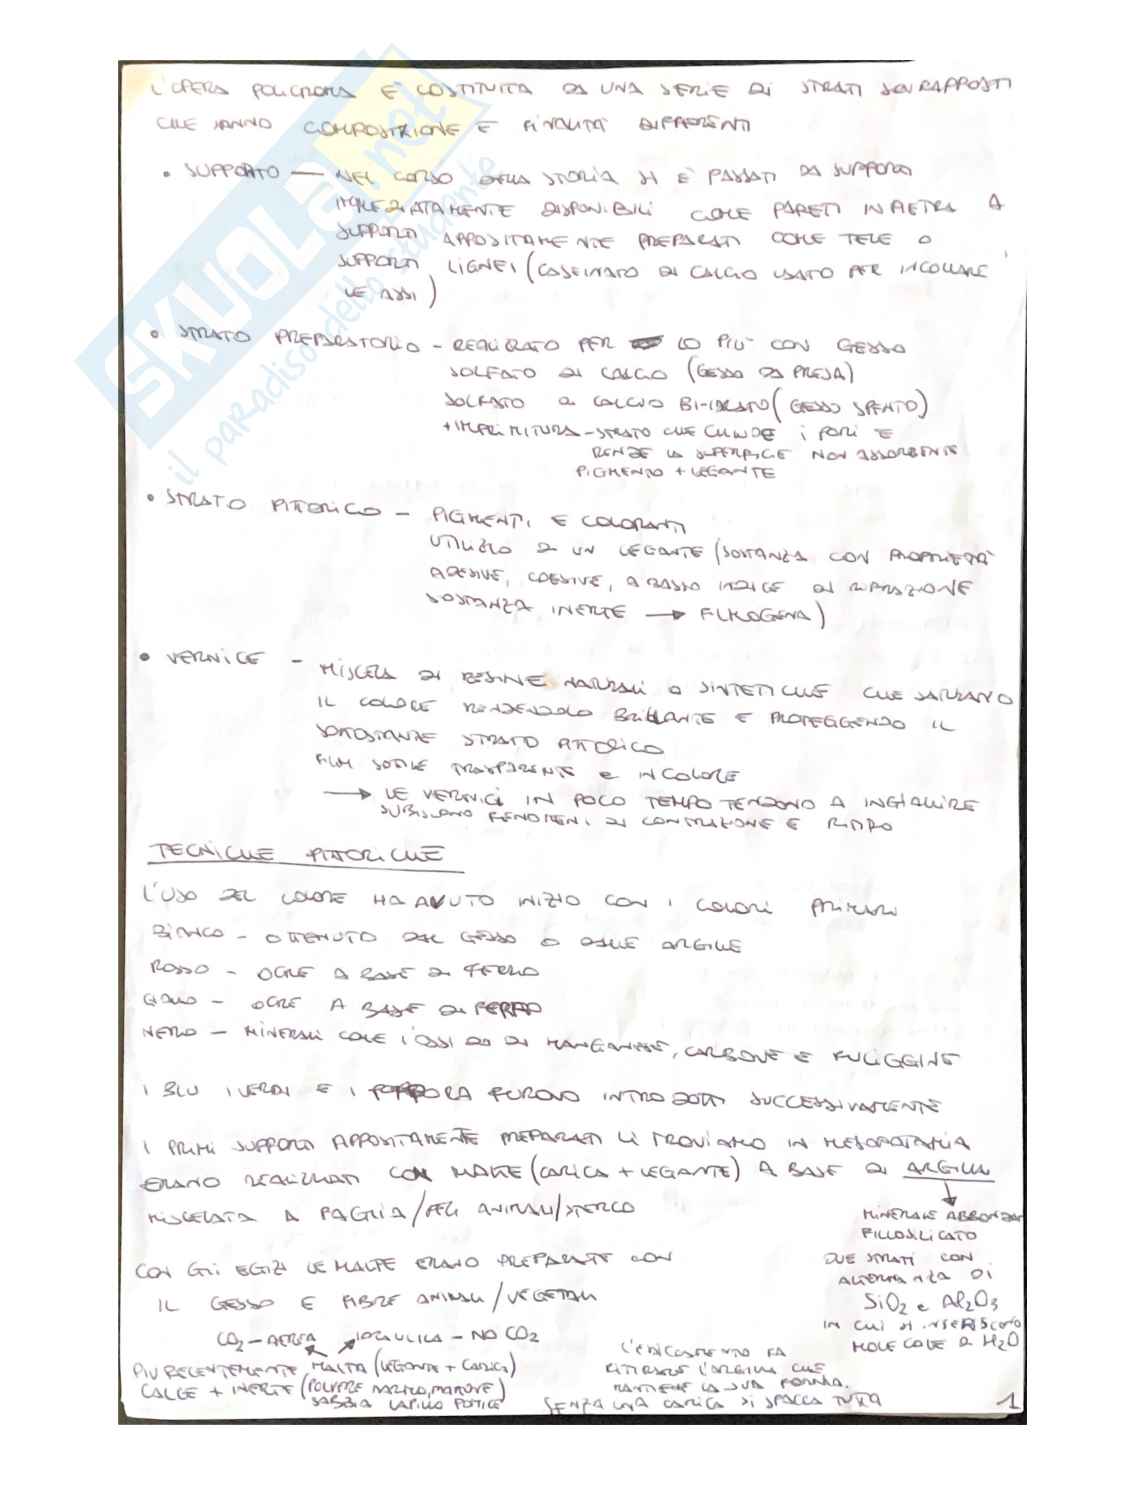 L'OPERA POLICROMA E' COSTITUITA DA UNA SERIE DI STRATI SOVRAPPOSTI
CHE HANNO COMPOSIZIONE E FINALITA' DIFFERENTI
• SUPPORTO — NEL CORSO DELLA STORIA SI E' PASSATI DA SUPPORTI
IMMEDIATAMENTE DISPONIBILI COME PARETI IN PIETRA A
SUPPORTI APPOSITAMENTE PREPARATI COME TELE O
SUPPORTI LIGNEI (CASEINATO DI CALCIO USATO PER INCOLLARE
LE ASSI)
• STRATO PREPARATORIO - REALIZZATO PER LO PIU' CON GESSO
SOLFATO DI CALCIO (GESSO DA PRESA)
SOLFATO DI CALCIO BI-IDRATO (GESSO SPENTO)
+ IMPRIMITURA - STRATO CHE CHIUDE I PORI E
RENDE LA SUPERFICIE NON ASSORBENTE
PIGMENTO + LEGANTE
• STRATO PITTORICO - PIGMENTI E COLORANTI
UTILIZZO DI UN LEGANTE (SOSTANZA CON PROPRIETA'
ADESIVE, COESIVE, A BASSO INDICE DI RIFRAZIONE
SOSTANZA INERTE → FILMOGENA)
• VERNICE - MISCELA DI RESINE NATURALI O SINTETICHE CHE SATURANO
IL COLORE RENDENDOLO BRILLANTE E PROTEGGENDO IL
SOTTOSTANTE STRATO PITTORICO
FILM SOTTILE TRASPARENTE E INCOLORE
→ LE VERNICI IN POCO TEMPO TENDONO A INGIALLIRE
SUBISCONO FENOMENI DI CONTRAZIONE E RITIRO
TECNICHE PITTORICHE
L'USO DEL COLORE HA AVUTO INIZIO CON I COLORI PRIMARI
BIANCO - OTTENUTO DAL GESSO O DALLE ARGILLE
ROSSO - OCRE A BASE DI FERRO
GIALLO - OCRE A BASE DI FERRO
NERO - MINERALI COME L'OSSIDO DI MANGANESE, CARBONE E FULIGGINE
I BLU I VERDI E I PORPORA FURONO INTRODOTTI SUCCESSIVAMENTE
I PRIMI SUPPORTI APPOSITAMENTE PREPARATI LI TROVIAMO IN MESOPOTAMIA
ERANO REALIZZATI CON MALTE (CARICA + LEGANTE) A BASE DI ARGILLA
MISCELATA A PAGLIA/PELI ANIMALI/STERCO
MINERALE ABBONDANTE
FILLOSILICATO
DUE STRATI CON
ALTERNANZA DI
SiO2 e Al2O3
IN CUI SI INSERISCONO
MOLECOLE DI H2O
CON GLI EGIZI LE MALTE ERANO PREPARATE CON
IL GESSO E FIBRE ANIMALI/VEGETALI
CO2 - AEREA IDRAULICA - NO CO2
PIU RECENTEMENTE MALTA (LEGANTE + CARICA)
CALCE + INERTE (POLVERE MARMO, MATTONE)
SABBIA LAPILLO POMICE
L'ESSICCAMENTO FA
RITIRARE L'ARGILLA CHE
MANTIENE LA SUA FORMA.
SENZA UNA CARICA SI SPACCA TUTTA
1
SKUOLA.net
il paradiso dello studente